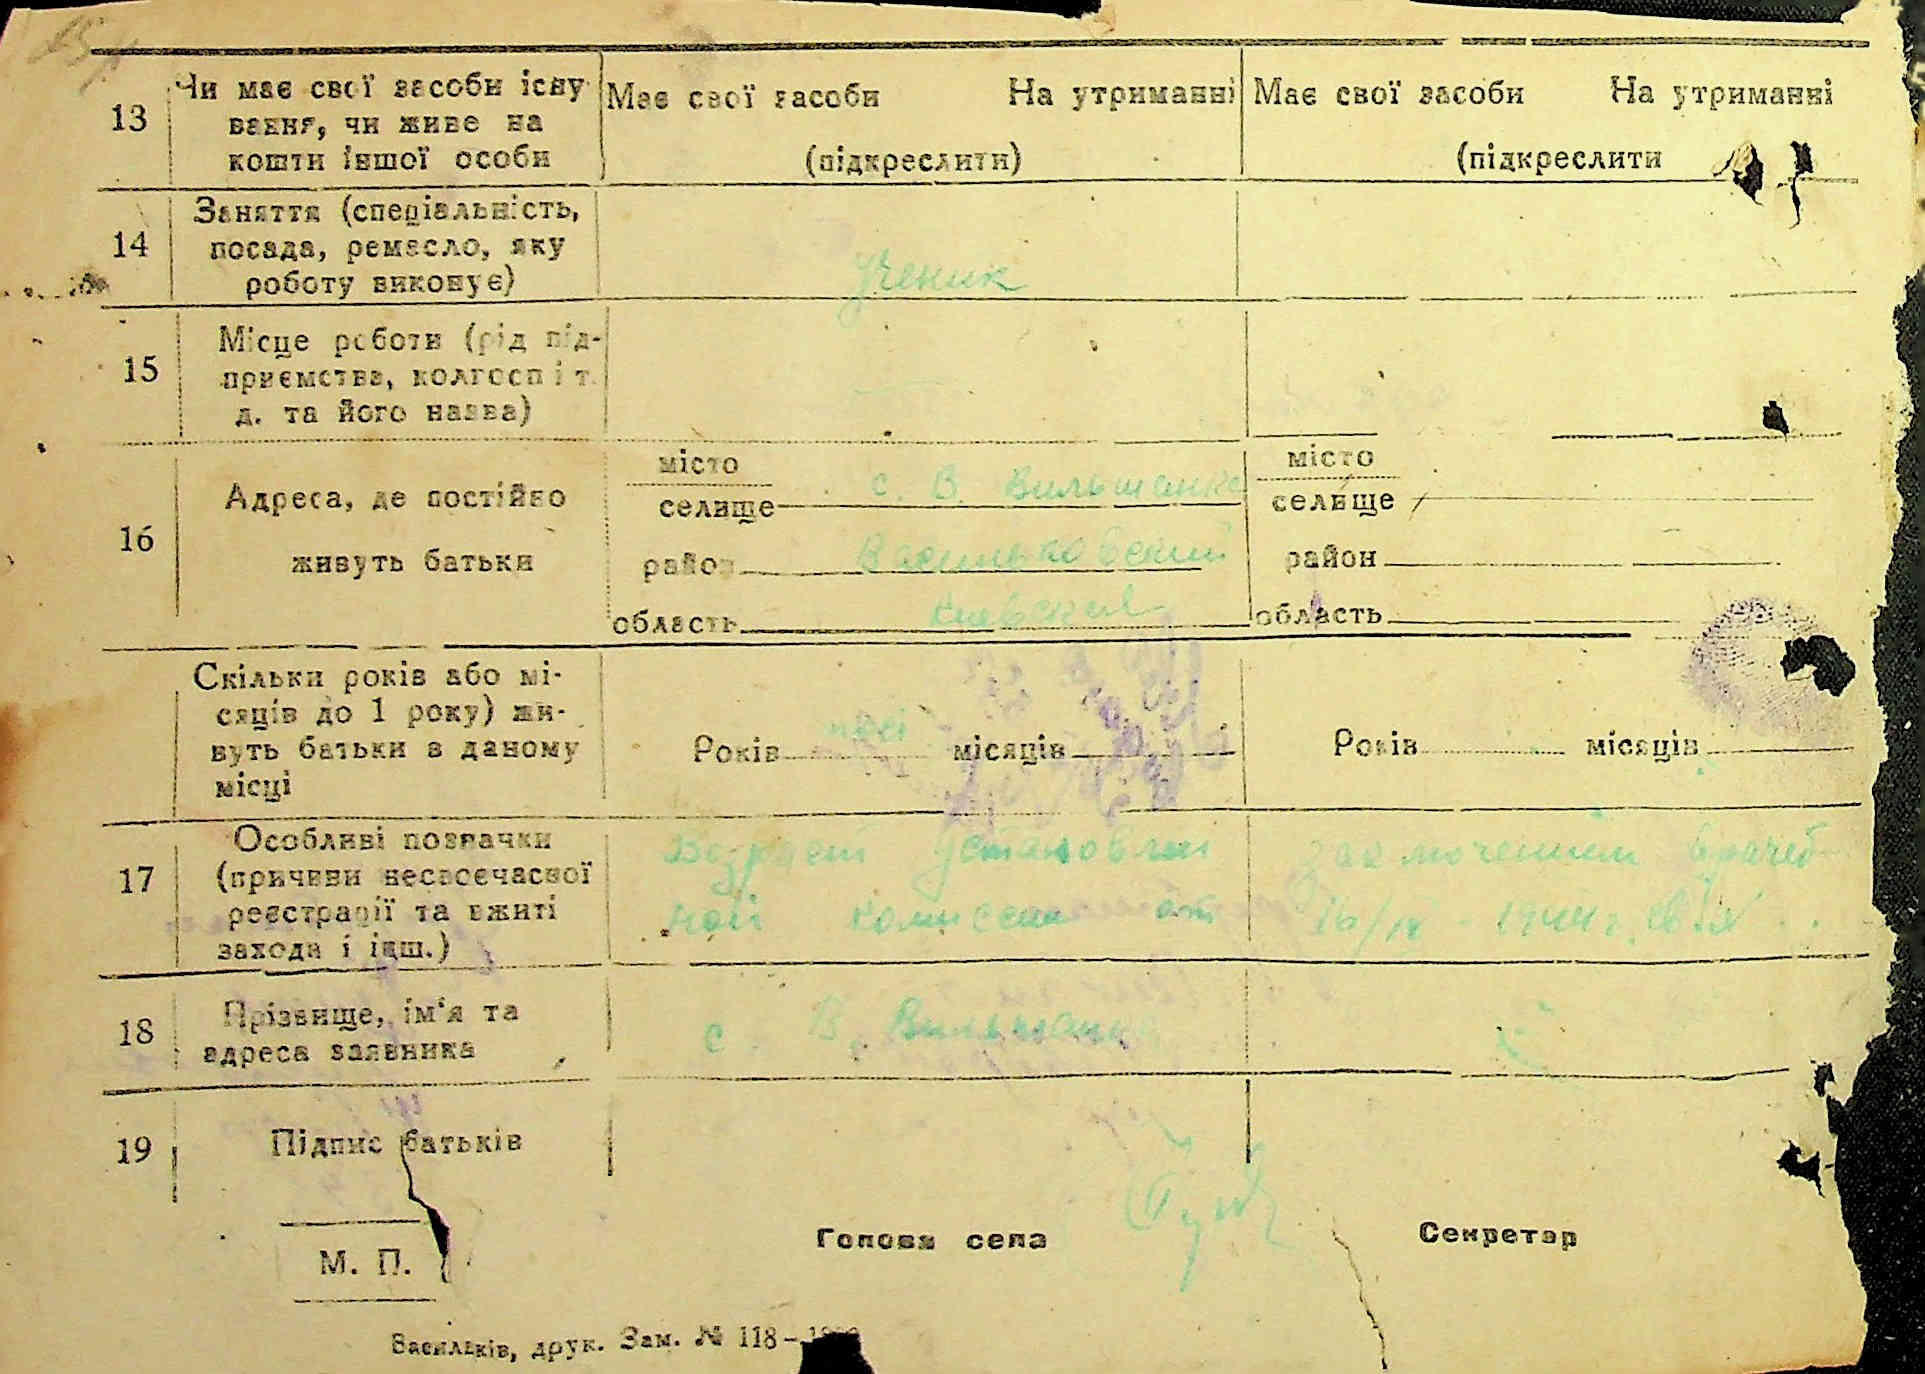 13
Чи має свої засоби існу-
вання, чи живе на
кошти іншої особи
Має свої засоби На утриманні
(підкреслити)
Має свої засоби На утриманні
(підкреслити
14
Заняття (спеціальність,
посада, ремесло, яку
роботу виконує)
Ученик
15
Місце роботи (рід під-
приємства, колгосп і т.
д. та його назва)
16
Адреса, де постійно
живуть батьки
місто
селище с. В. Вильшанка
район Васильковский
область Киевская
місто
селище
район
область
Скільки років або мі-
сяців до 1 року) жи-
вуть батьки в даному
місці
Років місяців
Років місяців
17
Особливі позначки
(причини несвоєчасної
реєстрації та вжиті
заходи і інш.)
Возраст установлен заключением врачеб-
ной комиссии от 16/IV - 1944 г.
18
Прізвище, ім'я та
адреса заявника
с. В. Вильшанка
19
Підпис батьків
М. П.
Голова села
Секретар
Васильків, друк. Зам. № 118-